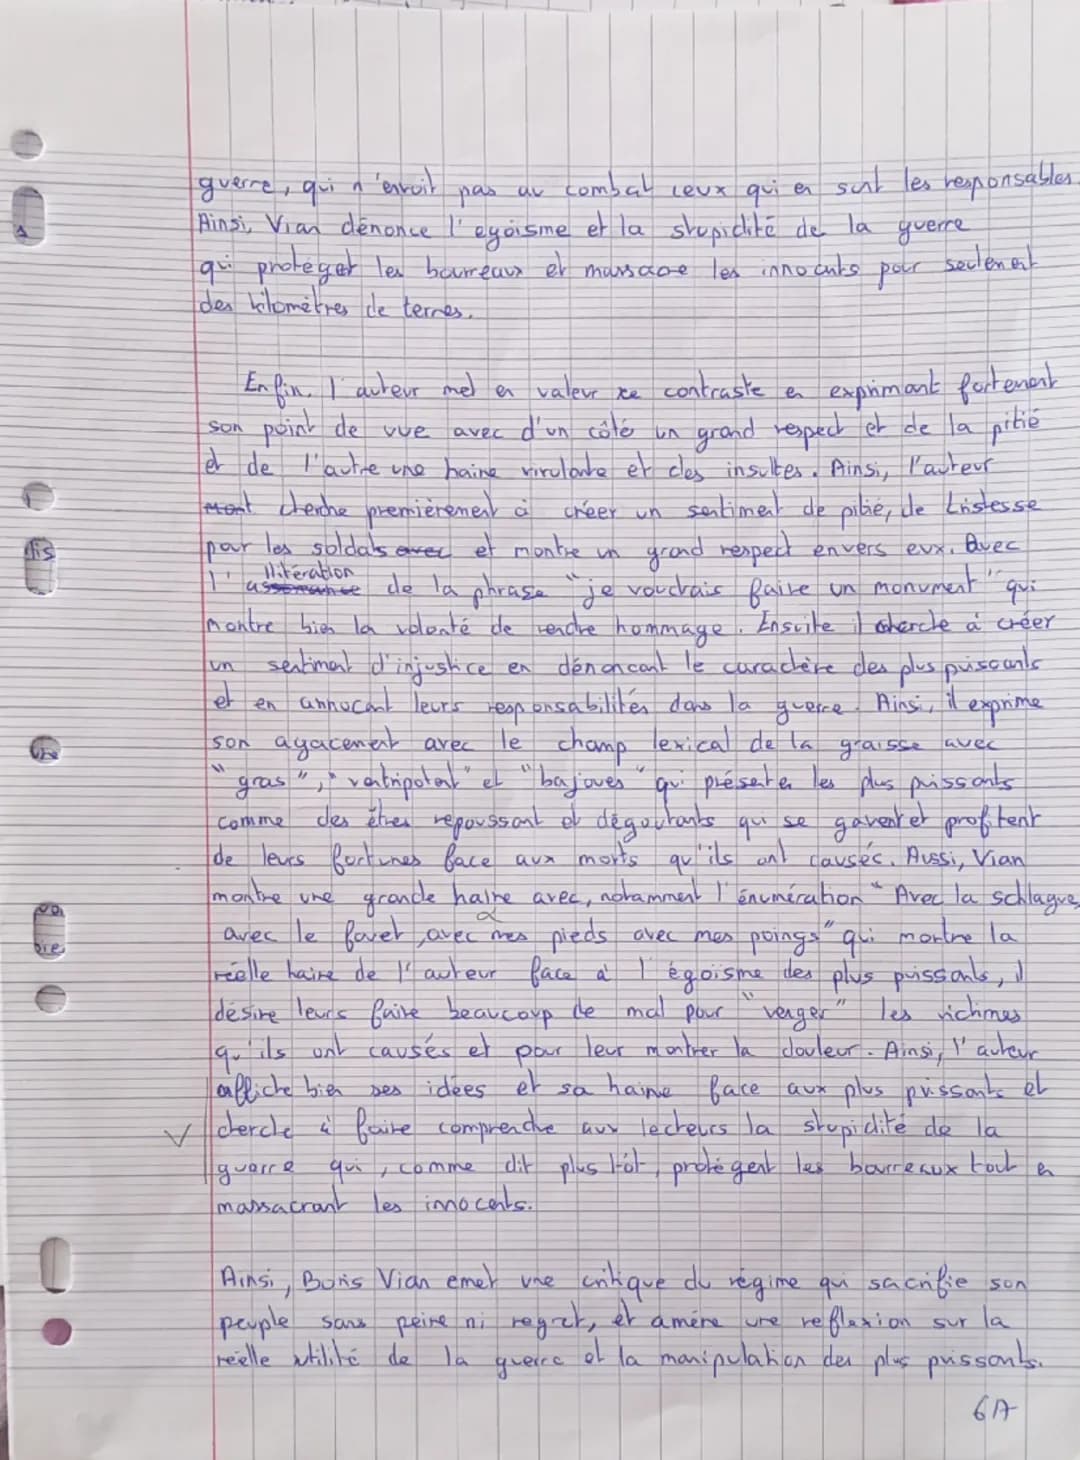 guerre, qui n'envoit pas au combat ceux qui en sont les responsables.
Ainsi, Vian dénonce l'egoïsme et la stupidité de la guerre
qui protéget les bourreaux et massacre les innocents pour seulement
des kilomètres de terres.
Enfin, l'auteur met en valeur ce contraste en exprimant fortement
son point de vue avec d'un côté un grand respect et de la pitié
et de l'autre une haine virulante et des insultes. Ainsi, l'auteur
mont cherche premièrement à créer un sentiment de pitié, de tristesse
pour les soldats avec et montre un grand respect envers eux. Avec
llitération
l'assonance de la phrase "je voudrais faire un monument" qui
montre bien la volonté de rendre hommage. Ensuite il cherche à créer
un sentiment d'injustice en dénoncant le caractère des plus puissants
et en annocant leurs responsabilités dans la guerre. Ainsi, il exprime
son agacement avec le champ lexical de la graisse avec
"gras", "ventripotent" et "bajoues" qui présente les plus puissants
comme des êtres repoussant et dégoutants qui se gavent et profitent
de leurs fortunes face aux morts qu'ils ont causés. Aussi, Vian
montre une grande haine avec, notamment l'énumération "Avec la schlague,
avec le fouet, avec mes pieds avec mes poings" qui montre la
réelle haine de l'auteur face à l'égoïsme des plus puissants, il
désire leurs faire beaucoup de mal pour "venger" les victimes
qu'ils ont causés et pour leur montrer la douleur. Ainsi, l'auteur
affiche bien ses idées et sa haine face aux plus puissants et
cherche à faire comprendre aux lecteurs la stupidité de la
guerre qui, comme dit plus tôt, protègent les bourreaux tout en
massacrant les innocents.
Ainsi, Boris Vian emet une critique du régime qui sacrifie son
peuple sans peine ni regret, et amène une reflexion sur la
réelle utilité de la guerre et la manipulation des plus puissants.
6A